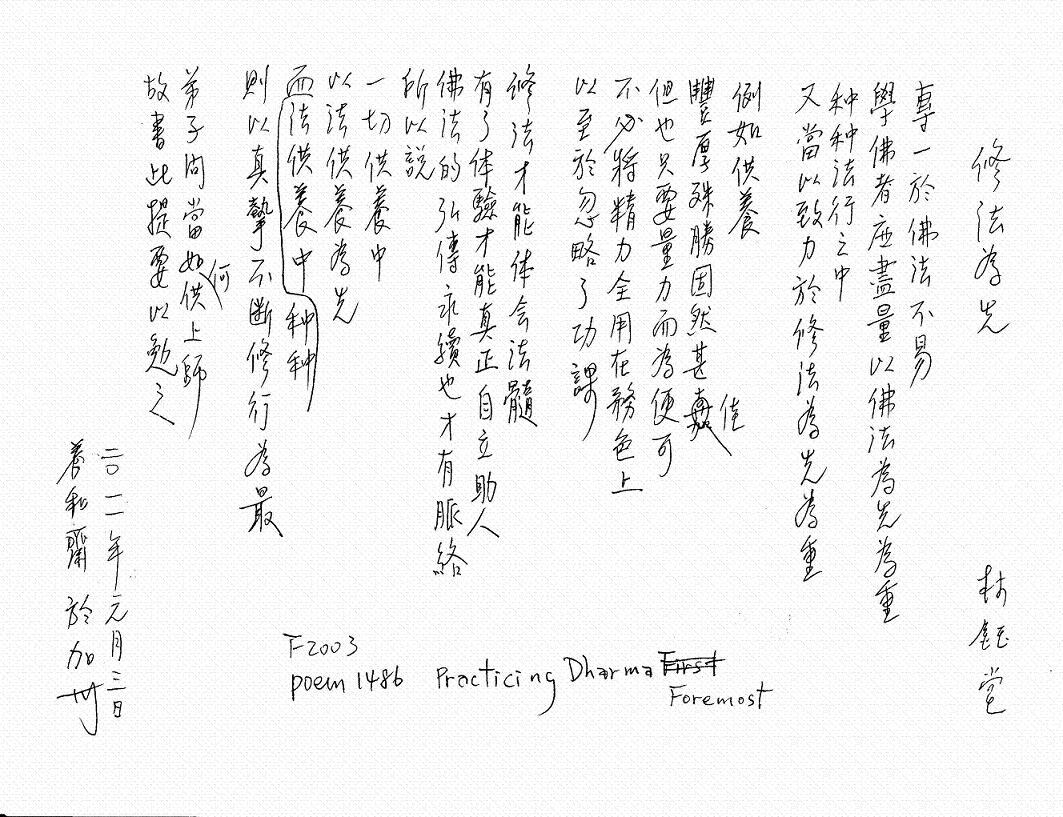 修法為先
林鈺堂
專一於佛法不易
學佛者應盡量以佛法為先為重
种种法行之中
又當以致力於修法為先為重
例如供養
豐厚殊勝固然甚佳
但也只要量力而為便可
不必將精力全用在務色上
以至於忽略了功課
修法才能体会法髓
有了体驗才能真正自立助人
佛法的弘傳永續也才有脈絡
所以說
一切供養中
以法供養為先
而法供養中种种
則以真摯不斷修行為最
弟子問當如何供上師
故書此提要以勉之
二〇一一年元月三日
養和齋 於加州
F2003
poem 1486 Practicing Dharma First
Foremost